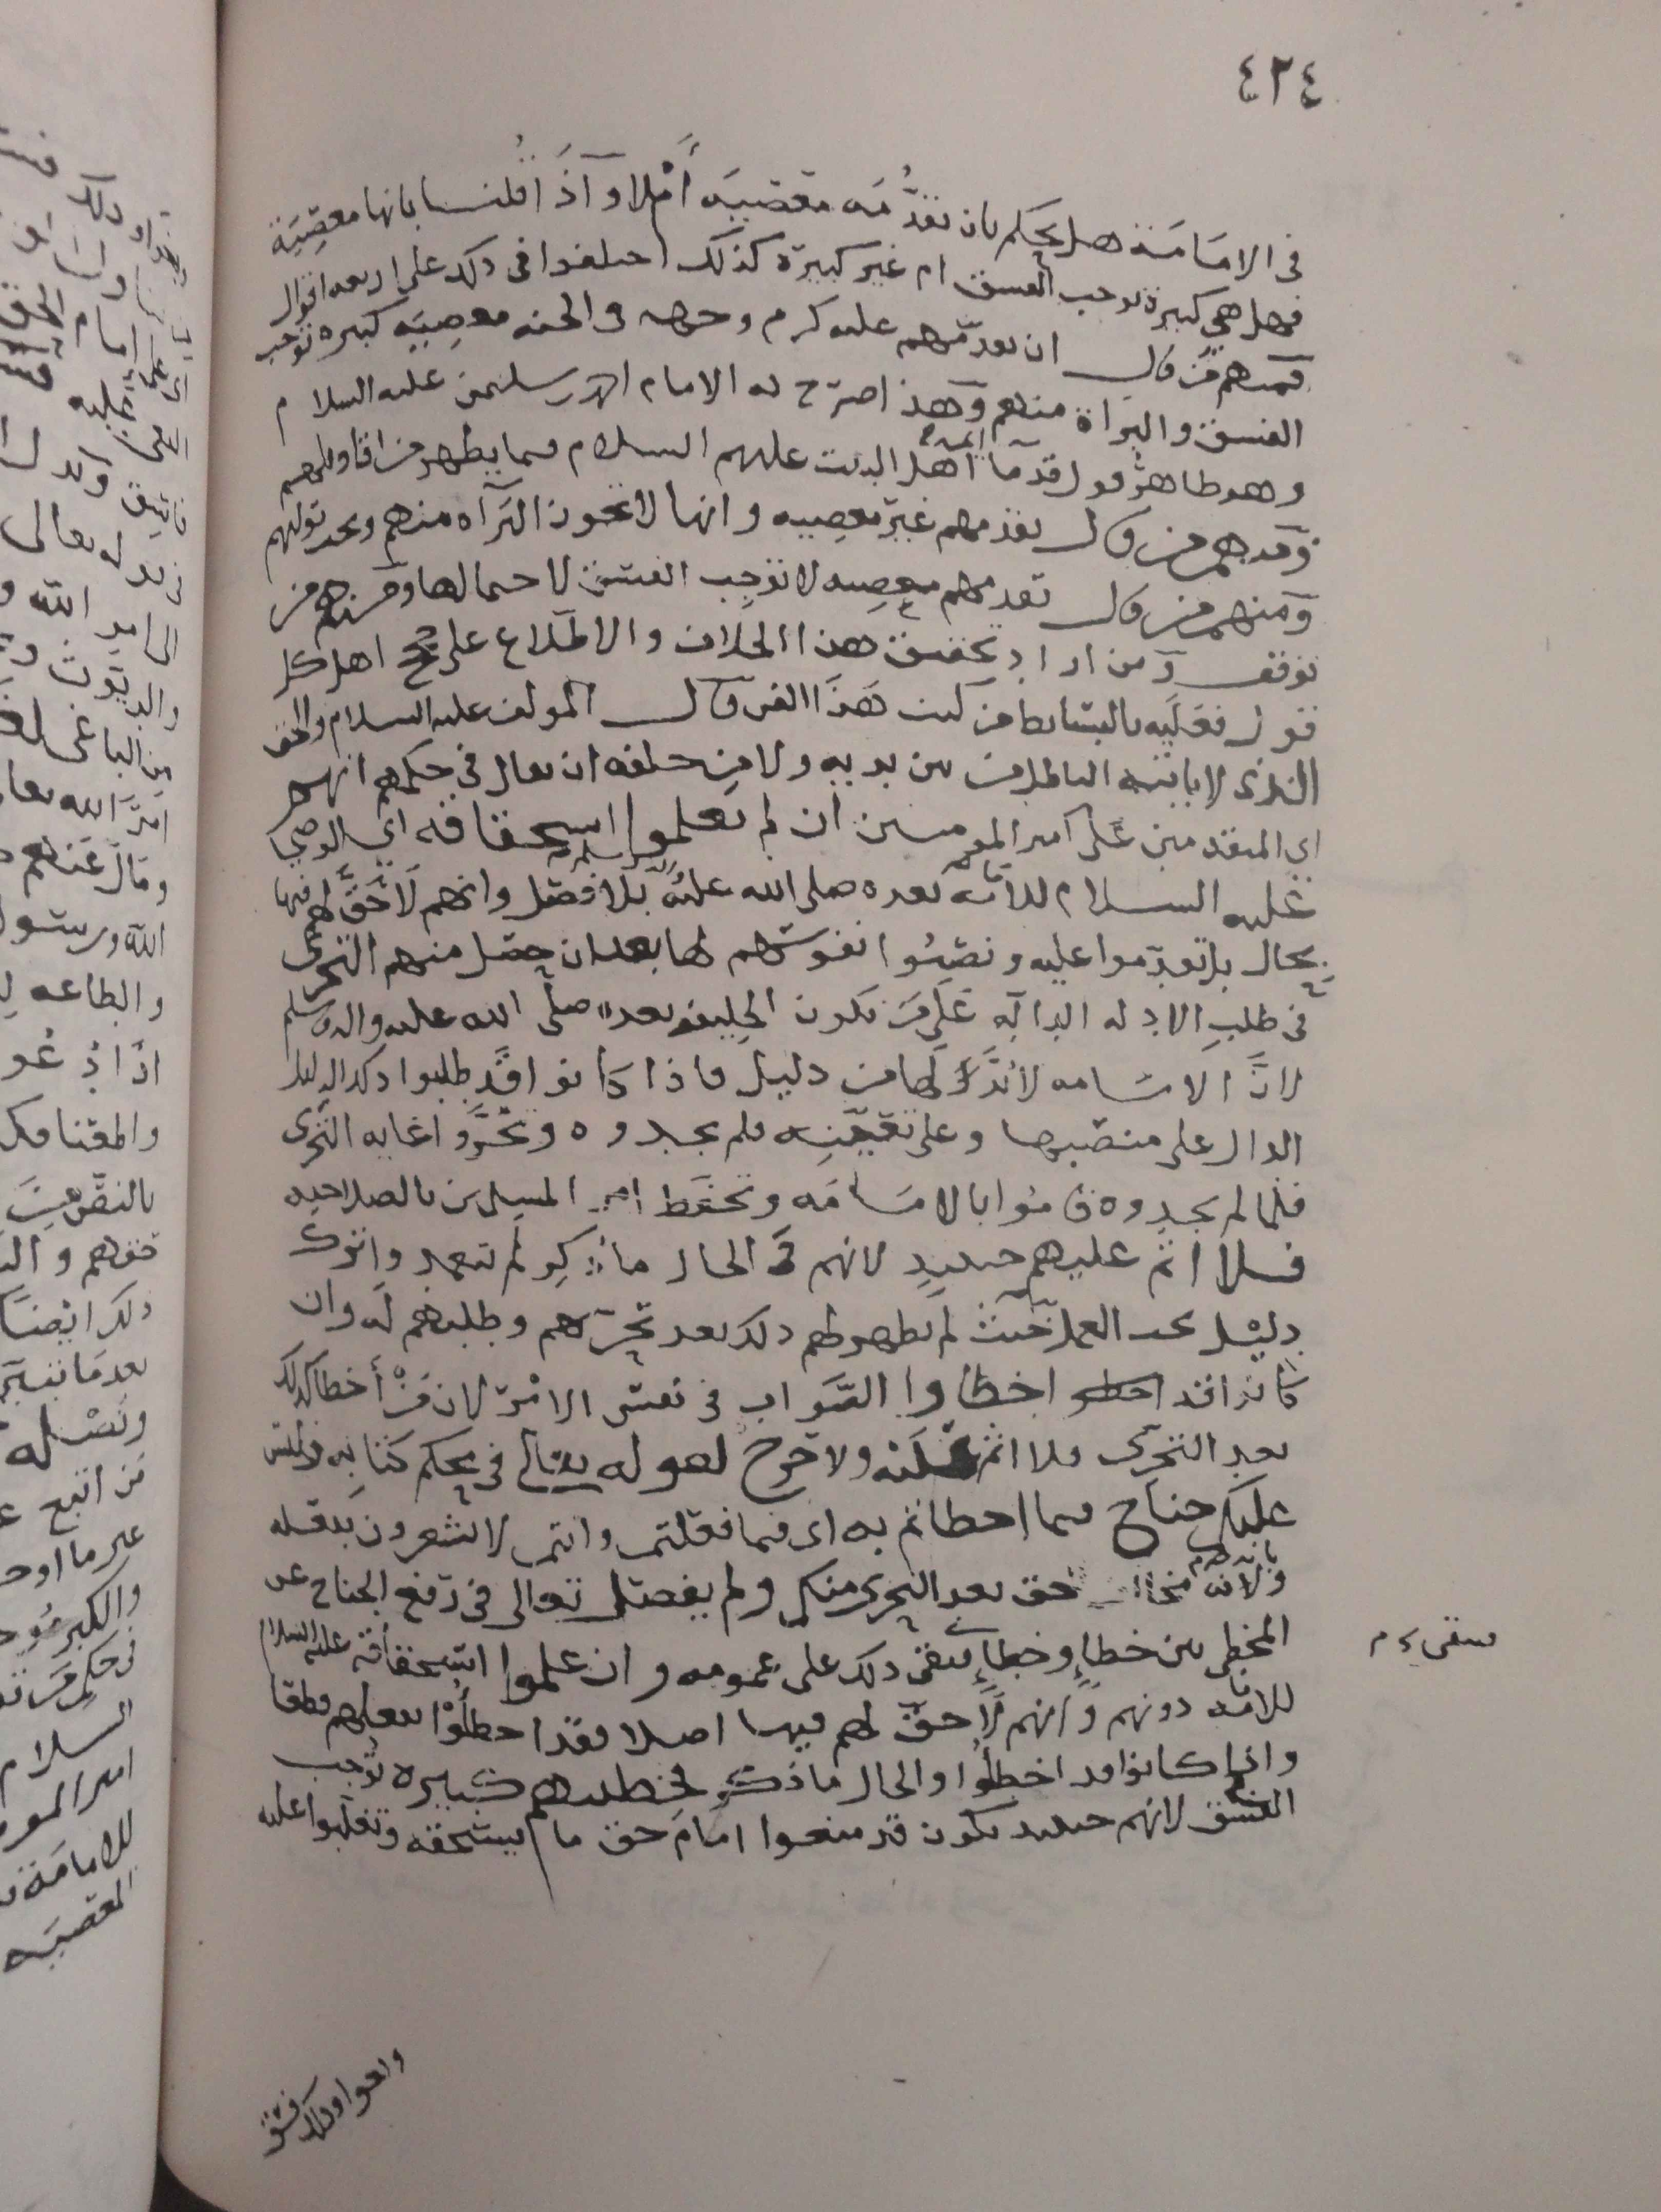 ٤٢٤
في الامامة هل يحكم بان تقدمه معصية أم لا وإذا قلنا بانها معصية
فهل هي كبيرة توجب الفسق ام غير كبيرة كذلك اختلفوا في ذلك على اربعة اقوال
فمنهم من قال ان تقدمهم عليه كرم وجهه في الجنه معصية كبيره توجب
الفسق والبراة منهم وهذا صرح به الامام سليمن عليه السلام
وهو ظاهر قول قدما ائمة أهل البيت عليهم السلام فيما يظهر من اقاويلهم
ومنهم من قال تقدمهم غير معصيه وانها لا تجوز البرآه منهم ويجب توليهم
ومنهم من قال تقدمهم معصيه لا توجب الفسق لاحتمالها ومنهم من
توقف ومن اراد تحقيق هذا الخلاف والاطلاع على حجج اهل كل
قول فعليه بالبسائط من كتب هذا الفن قال المولف عليه السلام والحق
الذي لا ياتيه الباطل من بين يديه ولا من خلفه ان يقال في حكمهم انهم
اي المتقدمين على امير المومنين ان لم يعلموا استحقاقه اي الوصي
عليه السلام للامامه بعده صلى الله عليه واله وسلم بلا فصل وانهم لا حق لهم فيها
بحال بل تقدموا عليه ونصبوا نفوسهم لها بعد ان حصل منهم التحري
في طلب الادله الداله على من تكون الخليفه بعده صلى الله عليه واله وسلم
لان الامامه لا بد لها من دليل فاذا كانوا قد طلبوا ذلك الدليل
الدال على منصبها وعلى تعيينه فلم يجدوه وتحروا غايه التحري
فلما لم يجدوه قاموا بالامامه وتحفظ امر المسلمين بالصلاحيه
فلا اثم عليهم حينئذ لانهم في الحال ما ذكر لم تعمد واترك
دليل يجب العمل حيث لم يظهر لهم ذلك بعد تحريهم وطلبهم له وان
كانوا قد اخطاوا الصواب في نفس الامر لان من أخطا كذلك
بعد التحري فلا اثم عليه ولا حرج لقوله تعالى في محكم كتابه وليس
عليكم جناح فيما اخطاتم به اي فيما فعلتم وانتم لا تشعرون بفعله
حق بعد التحري منكم ولم يفصل تعالى في رفع الجناح عن
المخطي بين خطإ وخطإ فيبقى ذلك على عمومه وان علموا استحقاقه عليه السلام
للامامه دونهم وانهم لا حق لهم فيها اصلا فقد اخطأوا بفعلهم قطعا
واذا كانوا قد اخطأوا والحال ما ذكر فخطيتهم كبيره توجب
الفسق لانهم حينئذ يكون قد منعوا امام حق ما يستحقه وتغلبوا عليه
فيبقى م